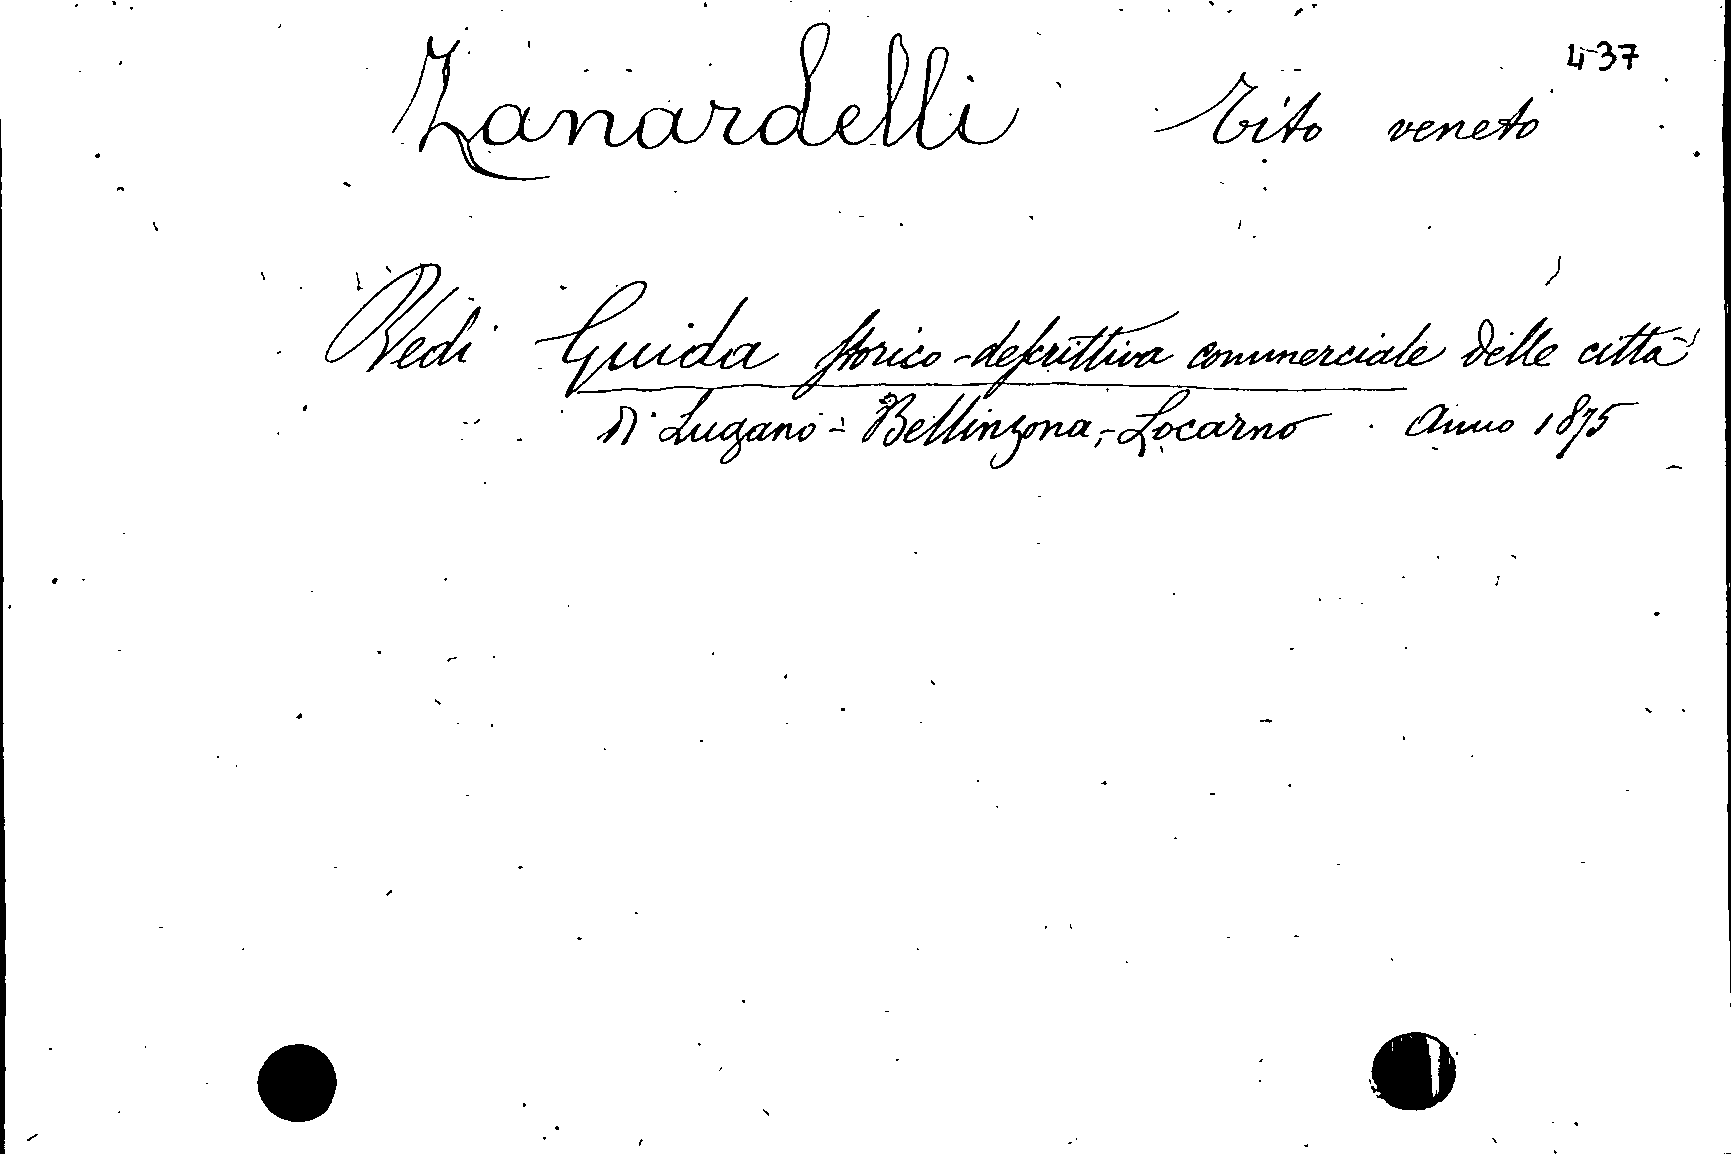 437
Zanardelli Tito veneto
Vedi Guida storico-descrittiva commerciale delle città
di Lugano - Bellinzona, - Locarno Anno 1875